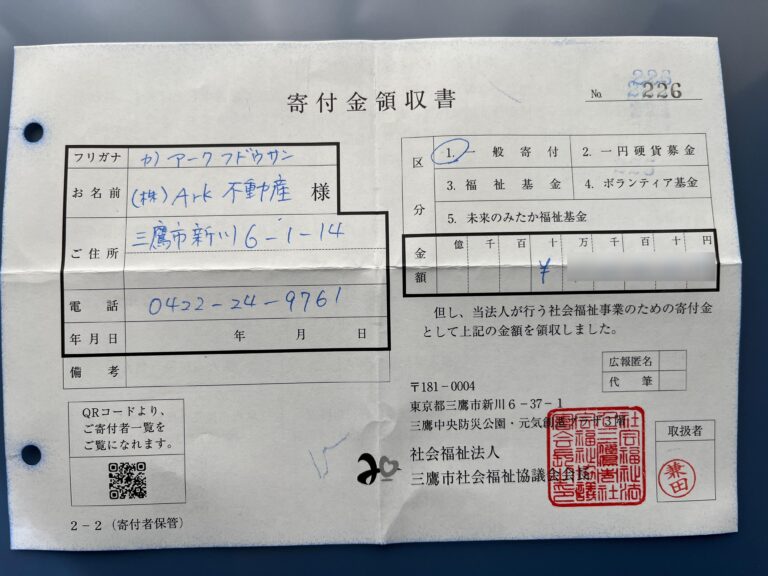 寄付金領収書
№ 226
フリガナ カ)アークフドウサン
お名前 (株)Ark 不動産 様
ご住所 三鷹市新川6-1-14
電話 0422-24-9761
年月日 年 月 日
備考
区分
1. 一般寄付 2. 一円硬貨募金
3. 福祉基金 4. ボランティア基金
5. 未来のみたか福祉基金
金額 億 千 百 十 万 千 百 十 円
¥
但し、当法人が行う社会福祉事業のための寄付金
として上記の金額を領収しました。
広報匿名
代筆
〒181-0004
東京都三鷹市新川6-37-1
三鷹中央防災公園・元気創造プラザ3階
社会福祉法人
三鷹市社会福祉協議会会長
取扱者
兼田
QRコードより、
ご寄付者一覧を
ご覧になれます。
2-2(寄付者保管)